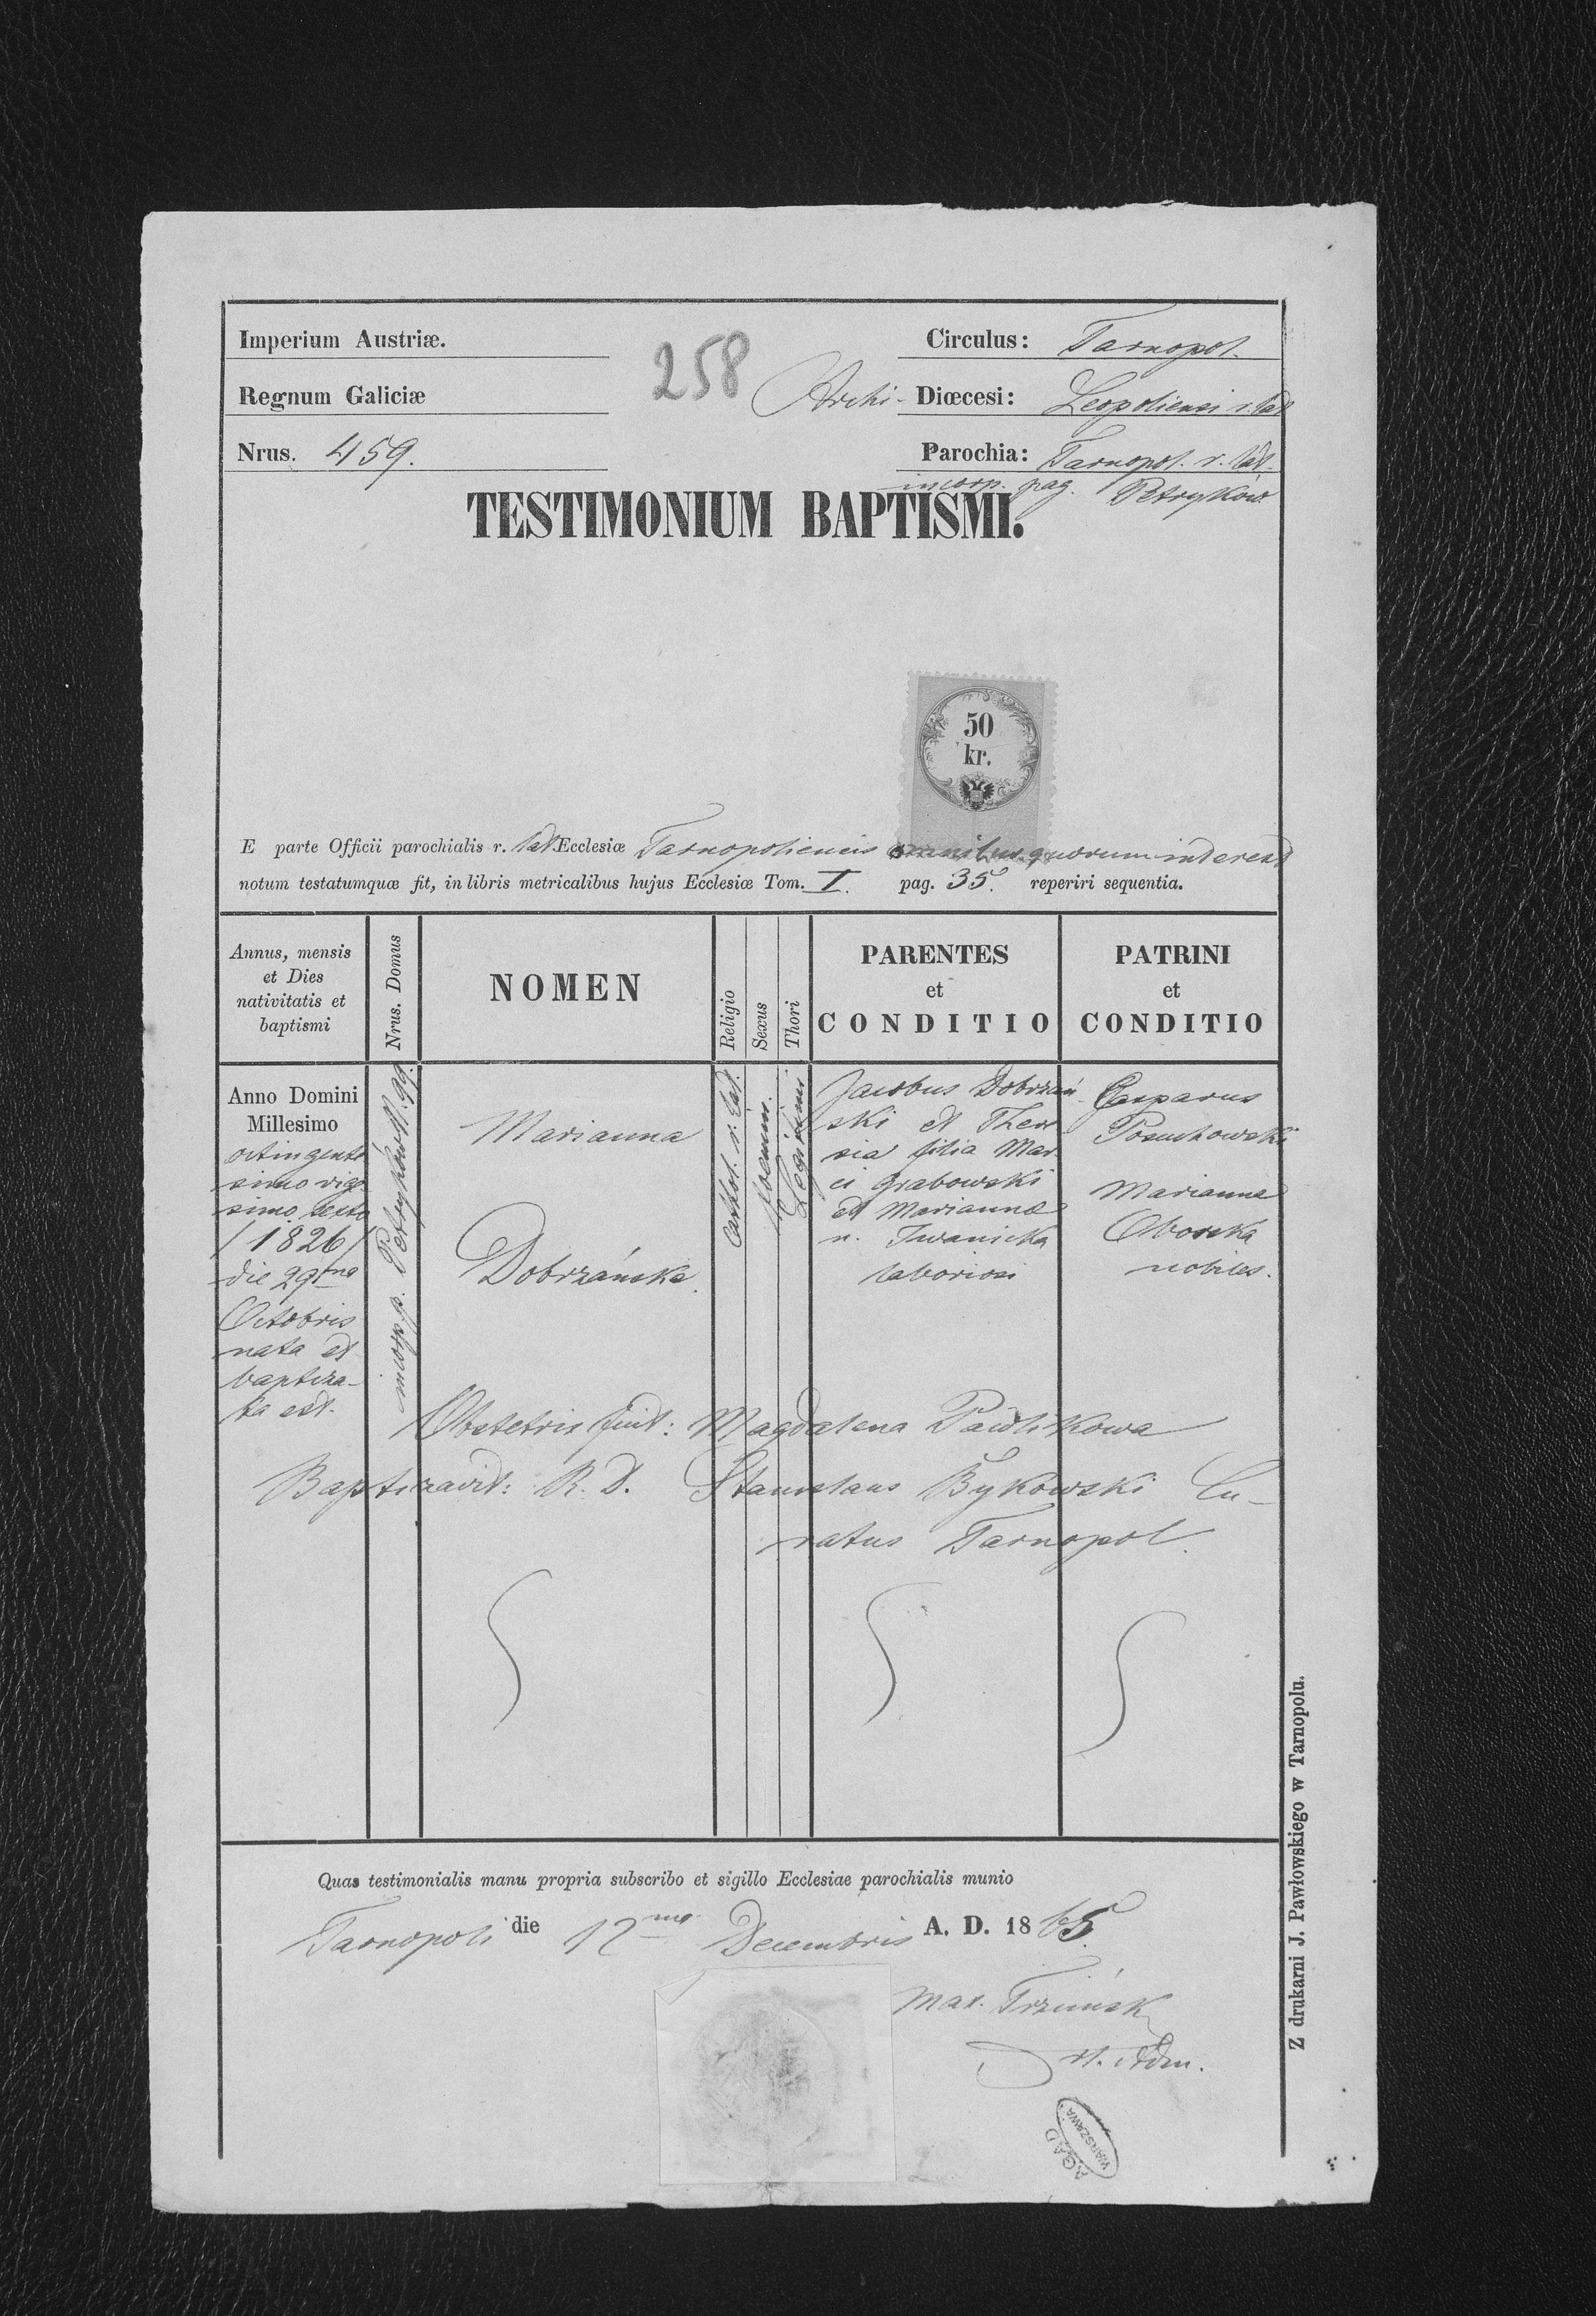 Imperium Austriæ.
258
Circulus: Tarnopol.
Regnum Galiciæ
Archi-Diœcesi: Leopoliensi r. lat
Nrus. 459.
Parochia: Tarnopol. r. lat.
incorp. pag. Petryków
TESTIMONIUM BAPTISMI.
50
kr.
E parte Officii parochialis r. lat Ecclesiæ Tarnopoliensis omnibus quorum interest
notum testatumquæ fit, in libris metricalibus hujus Ecclesiæ Tom. I. pag. 35. reperiri sequentia.
Annus, mensis
et Dies
nativitatis et
baptismi
Nrus. Domus
NOMEN
Religio
Sexus
Thori
PARENTES
et
CONDITIO
PATRINI
et
CONDITIO
Anno Domini
Millesimo
octingente
simo vige
simo sexto
/1826/
die 29na
Octobris
nata et
baptiza-
ta est.
incorp. p. Petryków N. 99.
Marianna
Dobrzańska.
Cathol. r. lat.
Foemin.
Legitimi
Jacobus Dobrzań
ski et There
sia filia Mar
ci Grabowski
et Marianna
n. Iwanicka
laboriosi
Gasparus
Marianna
nobiles.
Obstetrix fuit: Magdalena Pawlikowa
Baptizavit: R. D. Stanislaus Bykowski Cu-
ratus Tarnopol.
Quas testimonialis manu propria subscribo et sigillo Ecclesiae parochialis munio
Tarnopoli die 12ma Decembris A. D. 1865.
Max.
Adm.
AGAD
WARSZAWA
Z drukarni J. Pawłowskiego w Tarnopolu.